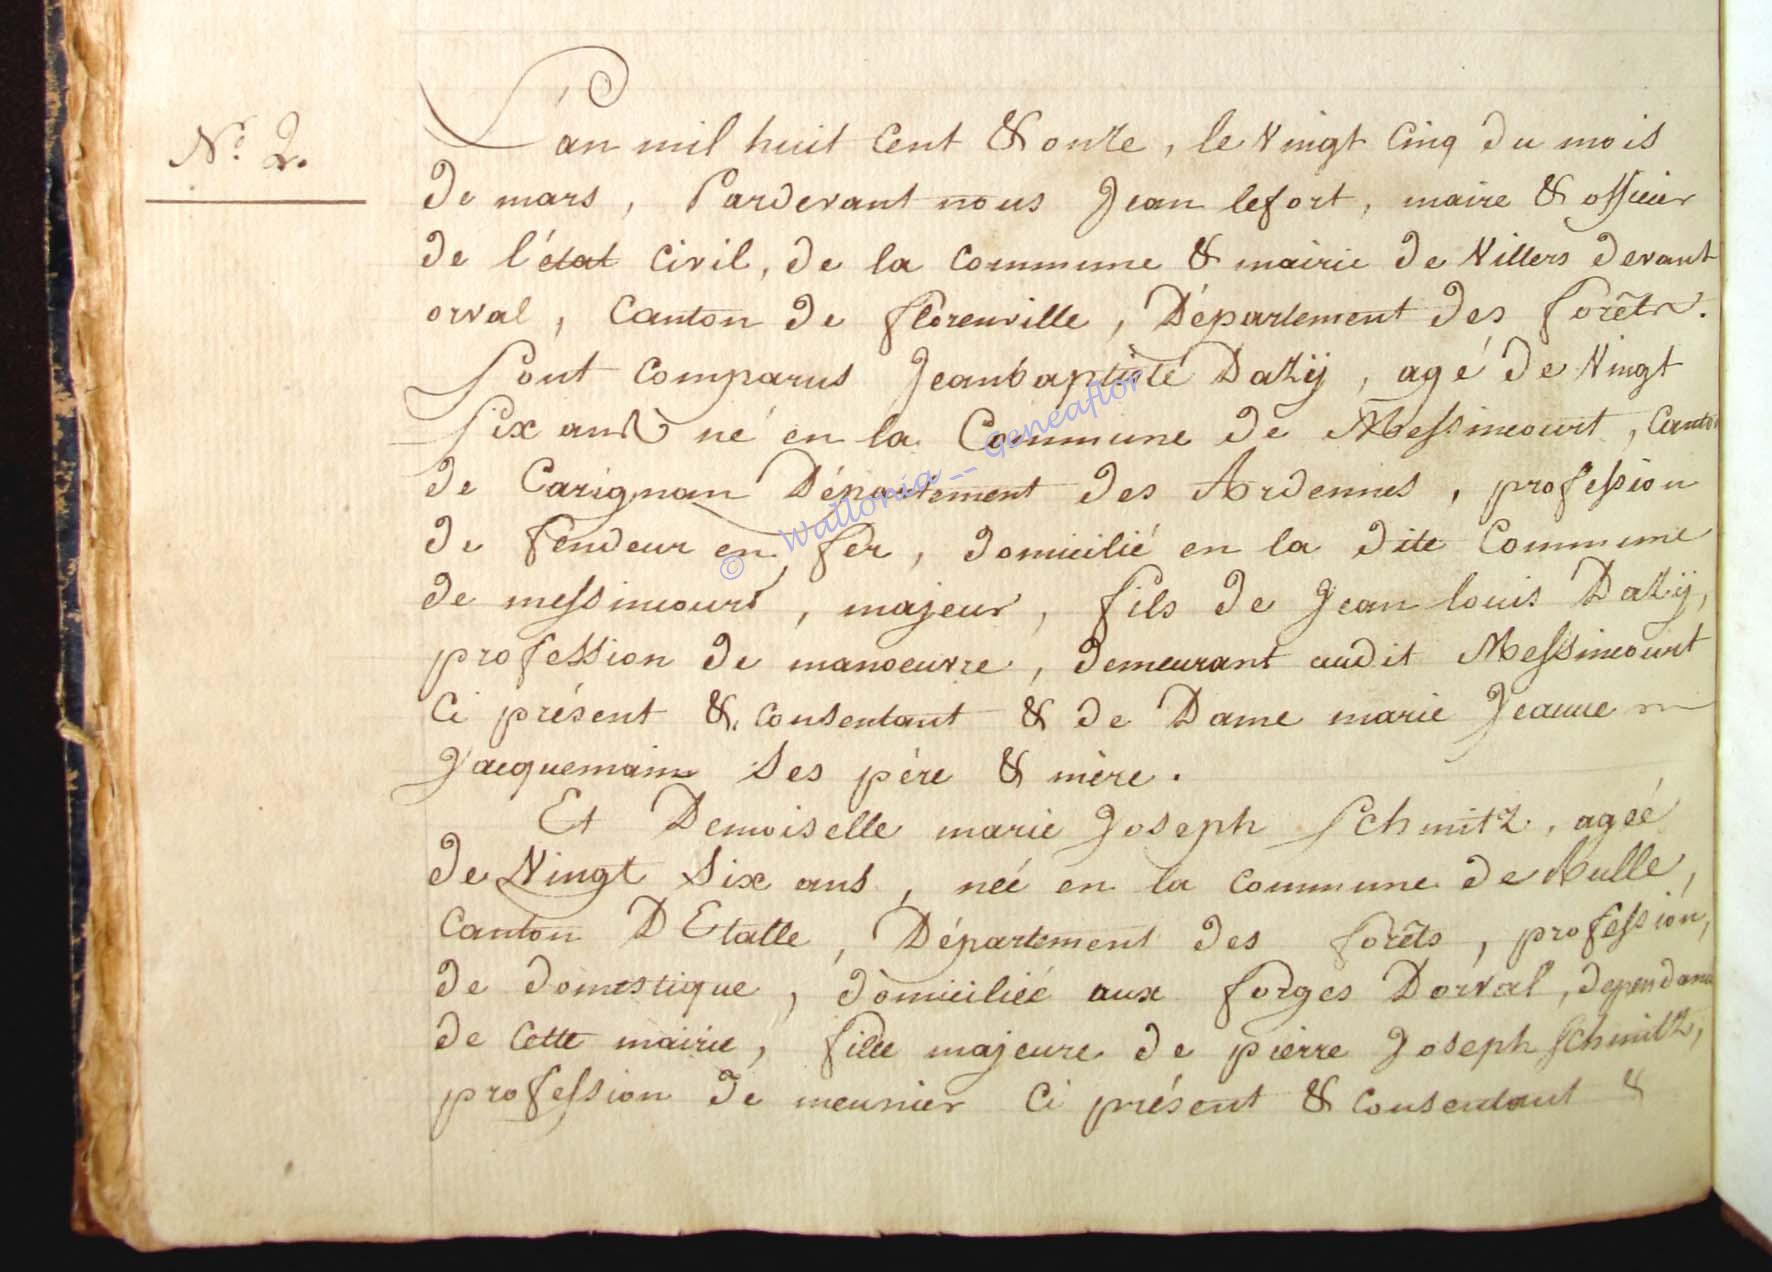 N.º 2.
L'an mil huit cent & onze, le Vingt cinq du mois
de mars, Pardevant nous Jean lefort, maire & officier
de l'état civil, de la commune & mairie de Villers devant
orval, canton de florenville, Département des forêts.
Sont comparus Jeanbaptiste Dazÿ, agé de Vingt
Six ans né en la Commune de Messincourt, Canton
de Carignan Département des Ardennes, profession
de fendeur en fer, domicilié en la dite Commune
de messincourt, majeur, fils de Jean louis Dazÿ,
profession de manoeuvre, demeurant audit Messincourt
Ci présent & consentant & de Dame marie Jeanne
Jacquemain Ses père & mère.
Et Demoiselle marie Joseph Schmitz, agée
de Vingt Six ans, née en la commune de Rulle,
Canton D Etalle, Département des forêts, profession,
de domestique, domiciliée aux forges Dorval, dependance
de cette mairie, fille majeure de pierre Joseph Schmitz,
profession de meunier Ci présent & consentant &
© Wallonia -- Geneaflor